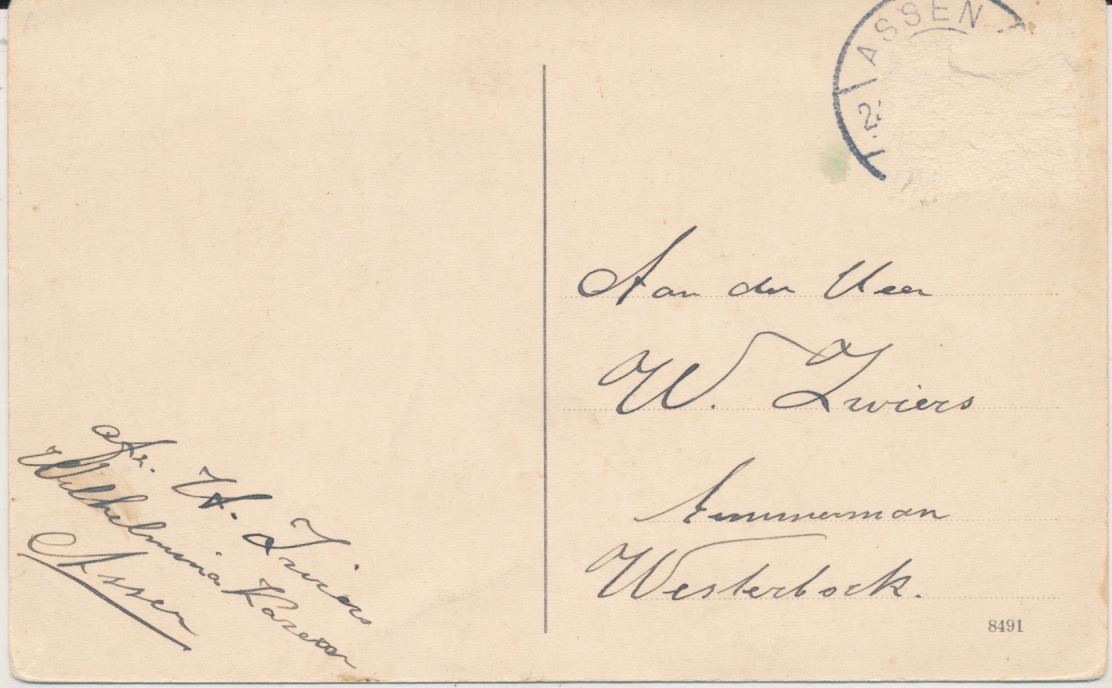 ASSEN
Aan den Heer
W. Zwiers
Timmerman
Westerbork.
8491
Af. H. Zwiers
Wilhelmina Kazerne
Assen